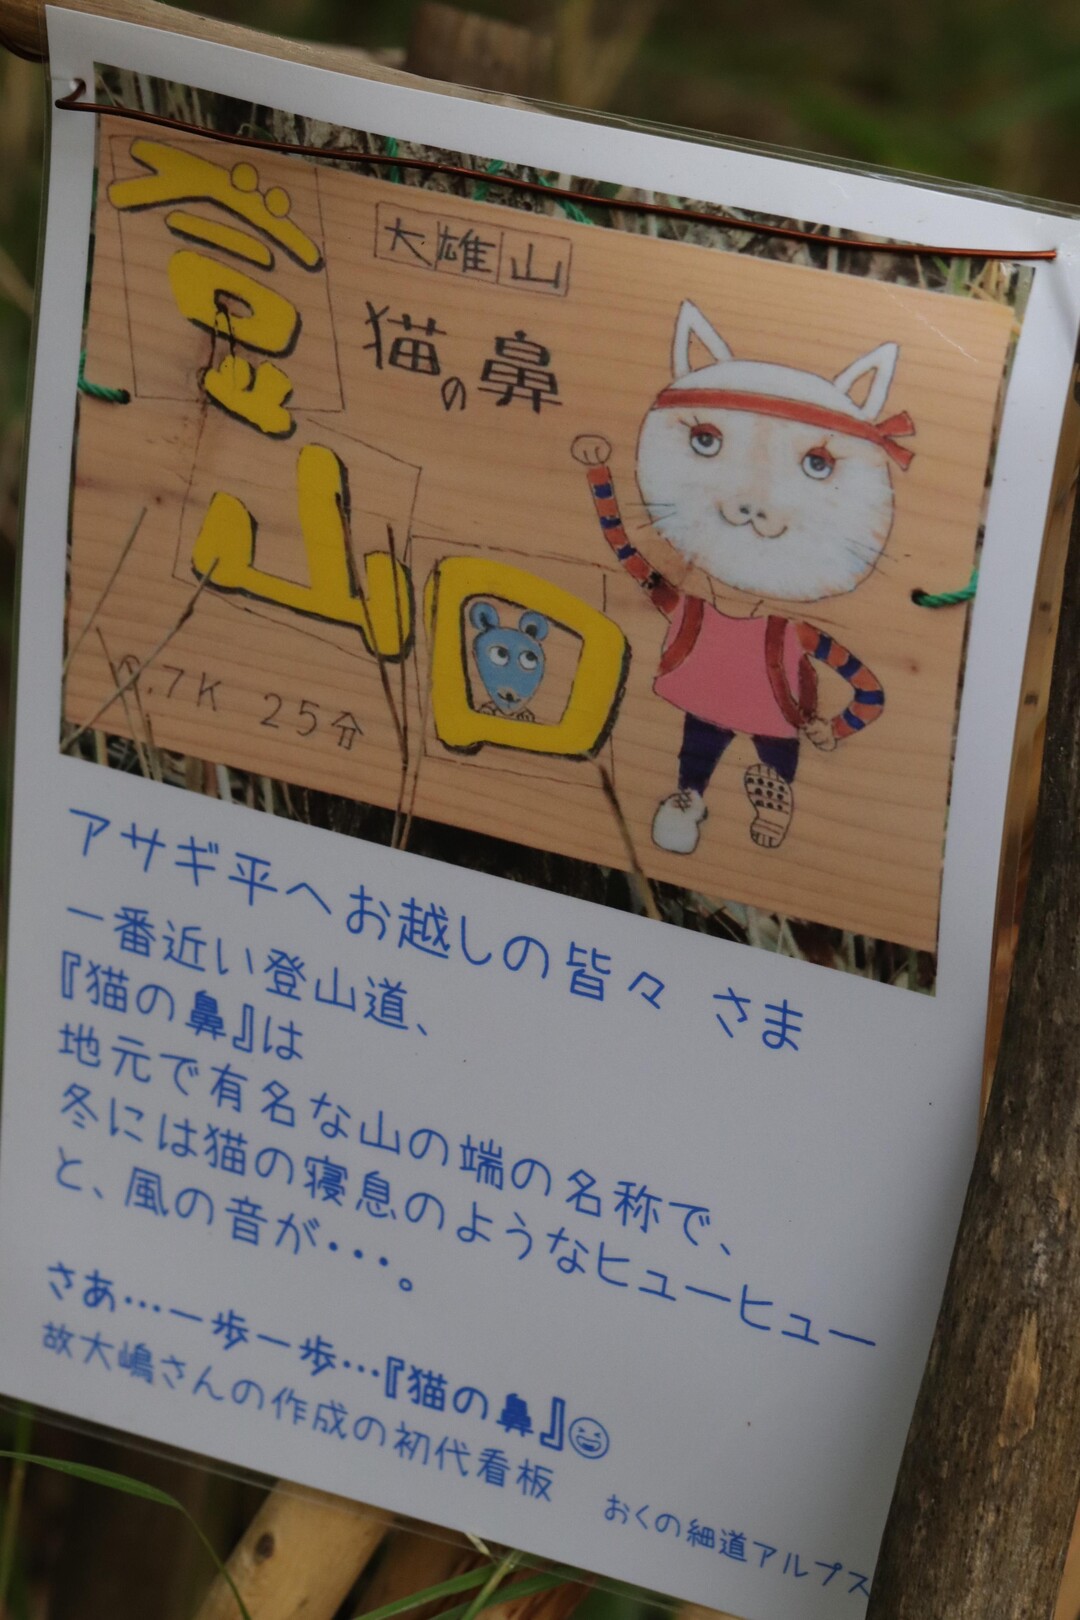 登山口
大雄山
猫の鼻
0.7K 25分
アサギ平へお越しの皆々 さま
一番近い登山道、
『猫の鼻』は
地元で有名な山の端の名称で、
冬には猫の寝息のようなヒューヒュー
と、風の音が・・・。
さあ…一歩一歩…『猫の鼻』😆
故大嶋さんの作成の初代看板
おくの細道アルプス